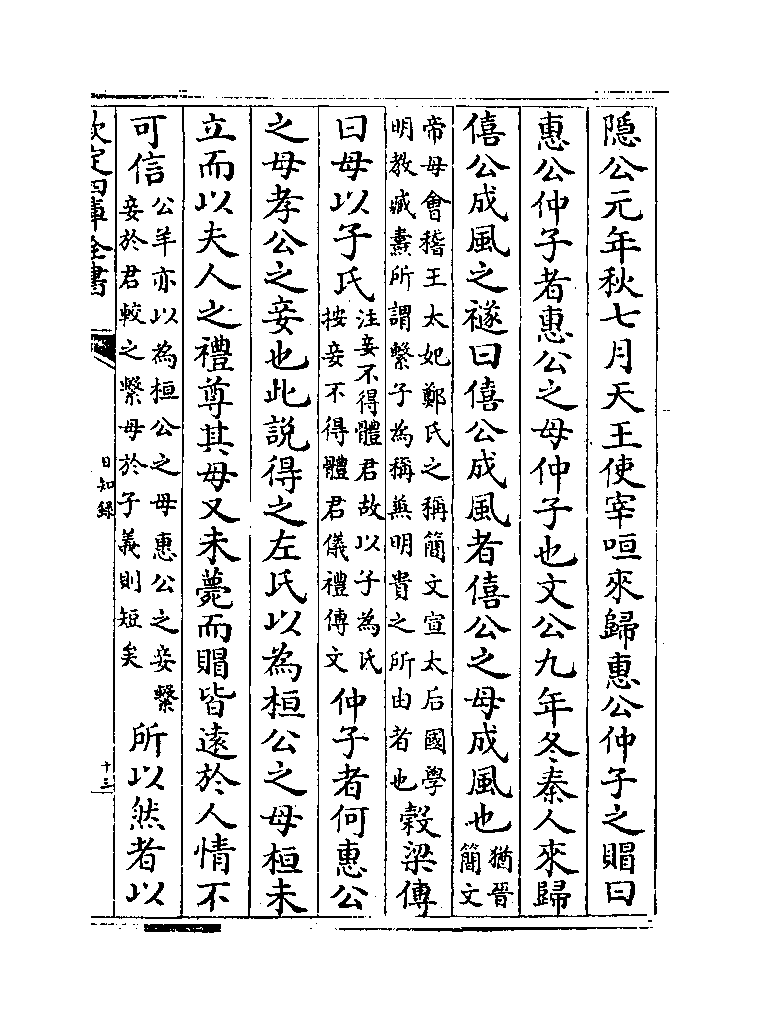 隐公元年秋七月天王使宰咺來歸惠公仲子之賵曰
惠公仲子者惠公之母仲子也文公九年冬秦人來歸
僖公成風之襚曰僖公成風者僖公之母成風也猶晉
簡文
帝母會稽王太妃鄭氏之稱簡文宣太后國學
明教臧燾所謂繫子為稱兼明貴之所由者也
榖梁傳
曰母以子氏
注妾不得體君故以子為氏
按妾不得體君儀禮傳文
仲子者何惠公
之母孝公之妾也此說得之左氏以為桓公之母桓未
立而以夫人之禮尊其母又未薨而賵皆遠於人情不
可信
公羊亦以為桓公之母惠公之妾繫
妾於君較之繫母於子義則短矣
所以然者以
欽定四庫全書
日知錄
十三